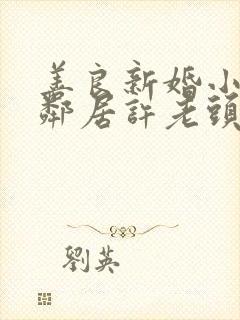 美良新婚小
鄰居許老頭
劉英